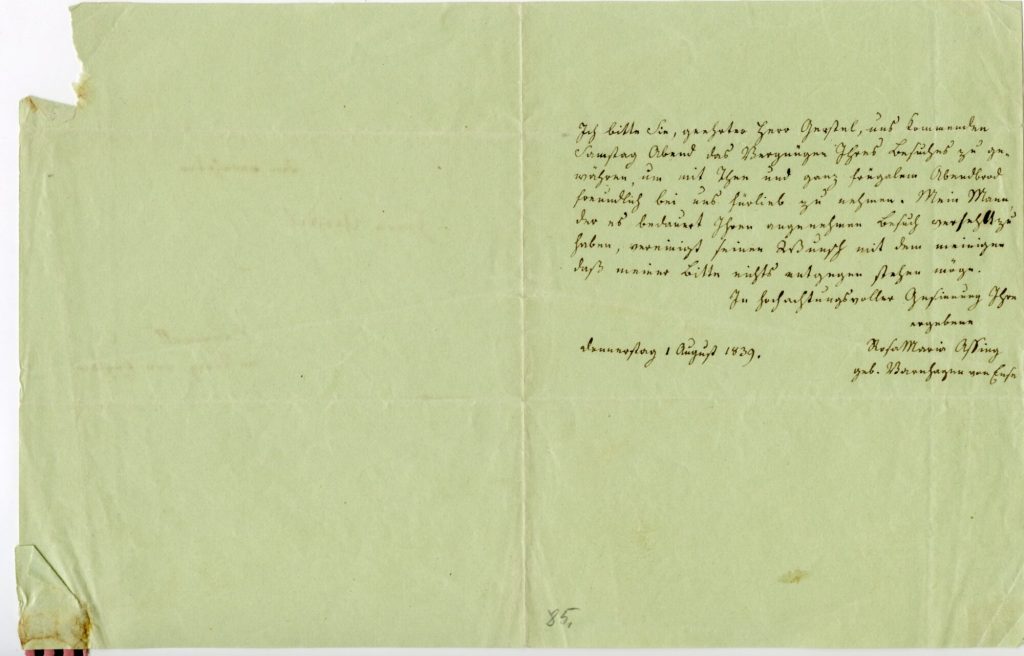 Ich bitte Sie, geehrter Herr Gerstel, uns kommenden
Samstag Abend das Vergnügen Ihres Besuches zu ge-
währen, um mit Thee und ganz frugalem Abendbrod
freundlich bei uns fürlieb zu nehmen. Mein Mann,
der es bedauert Ihren angenehmen Besuch verfehlt zu
haben, vereinigt seinen Wunsch mit dem meinigen
daß meiner Bitte nichts entgegen stehen möge.
In hochachtungsvoller Gesinnung Ihre
ergebene
Donnerstag 1 August 1839.
Rosa Maria Assing
geb. Varnhagen von Ense
85.